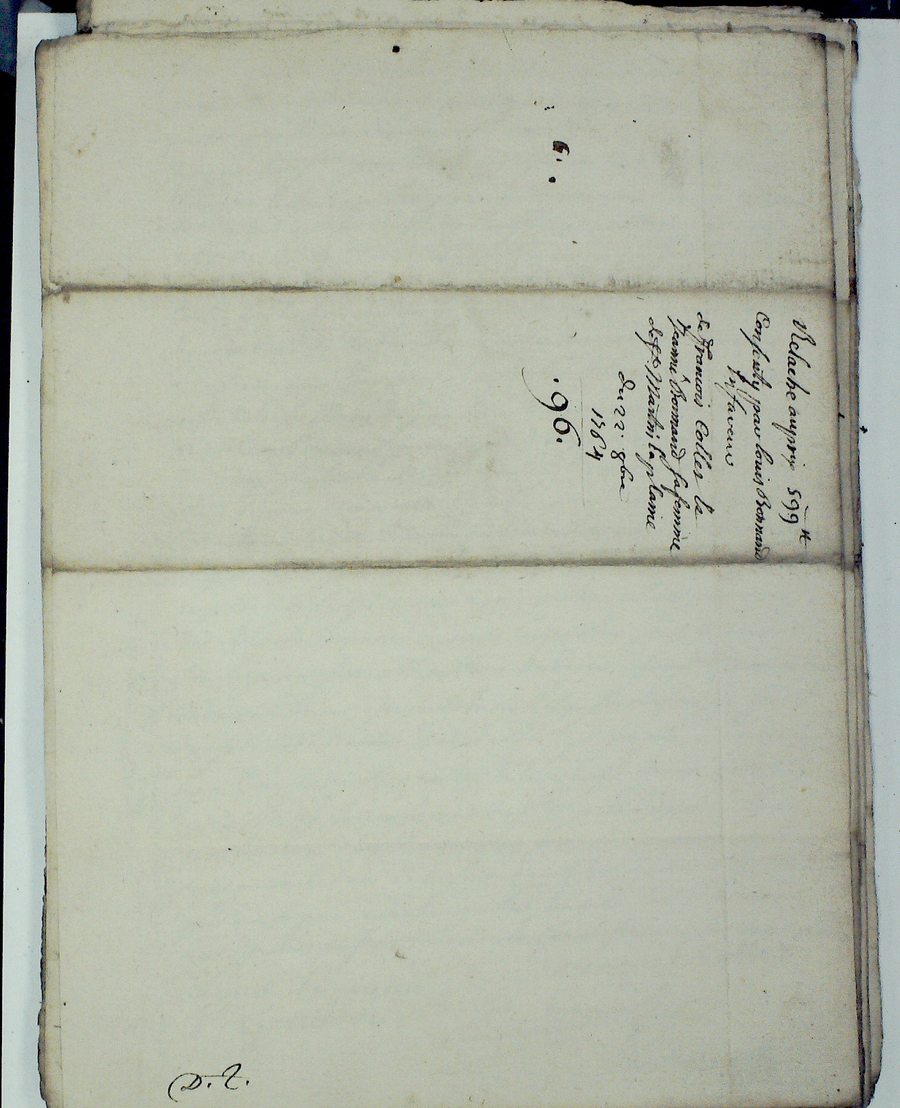 Relache au prix 599 ₶
Consenty par louis Bonnand
En faveur
de Francois Collet &
Jeanne Bonnand sa femme
de St. Martin la plaine
Du 22. 8bre
1764
.96.
6.
D. T.